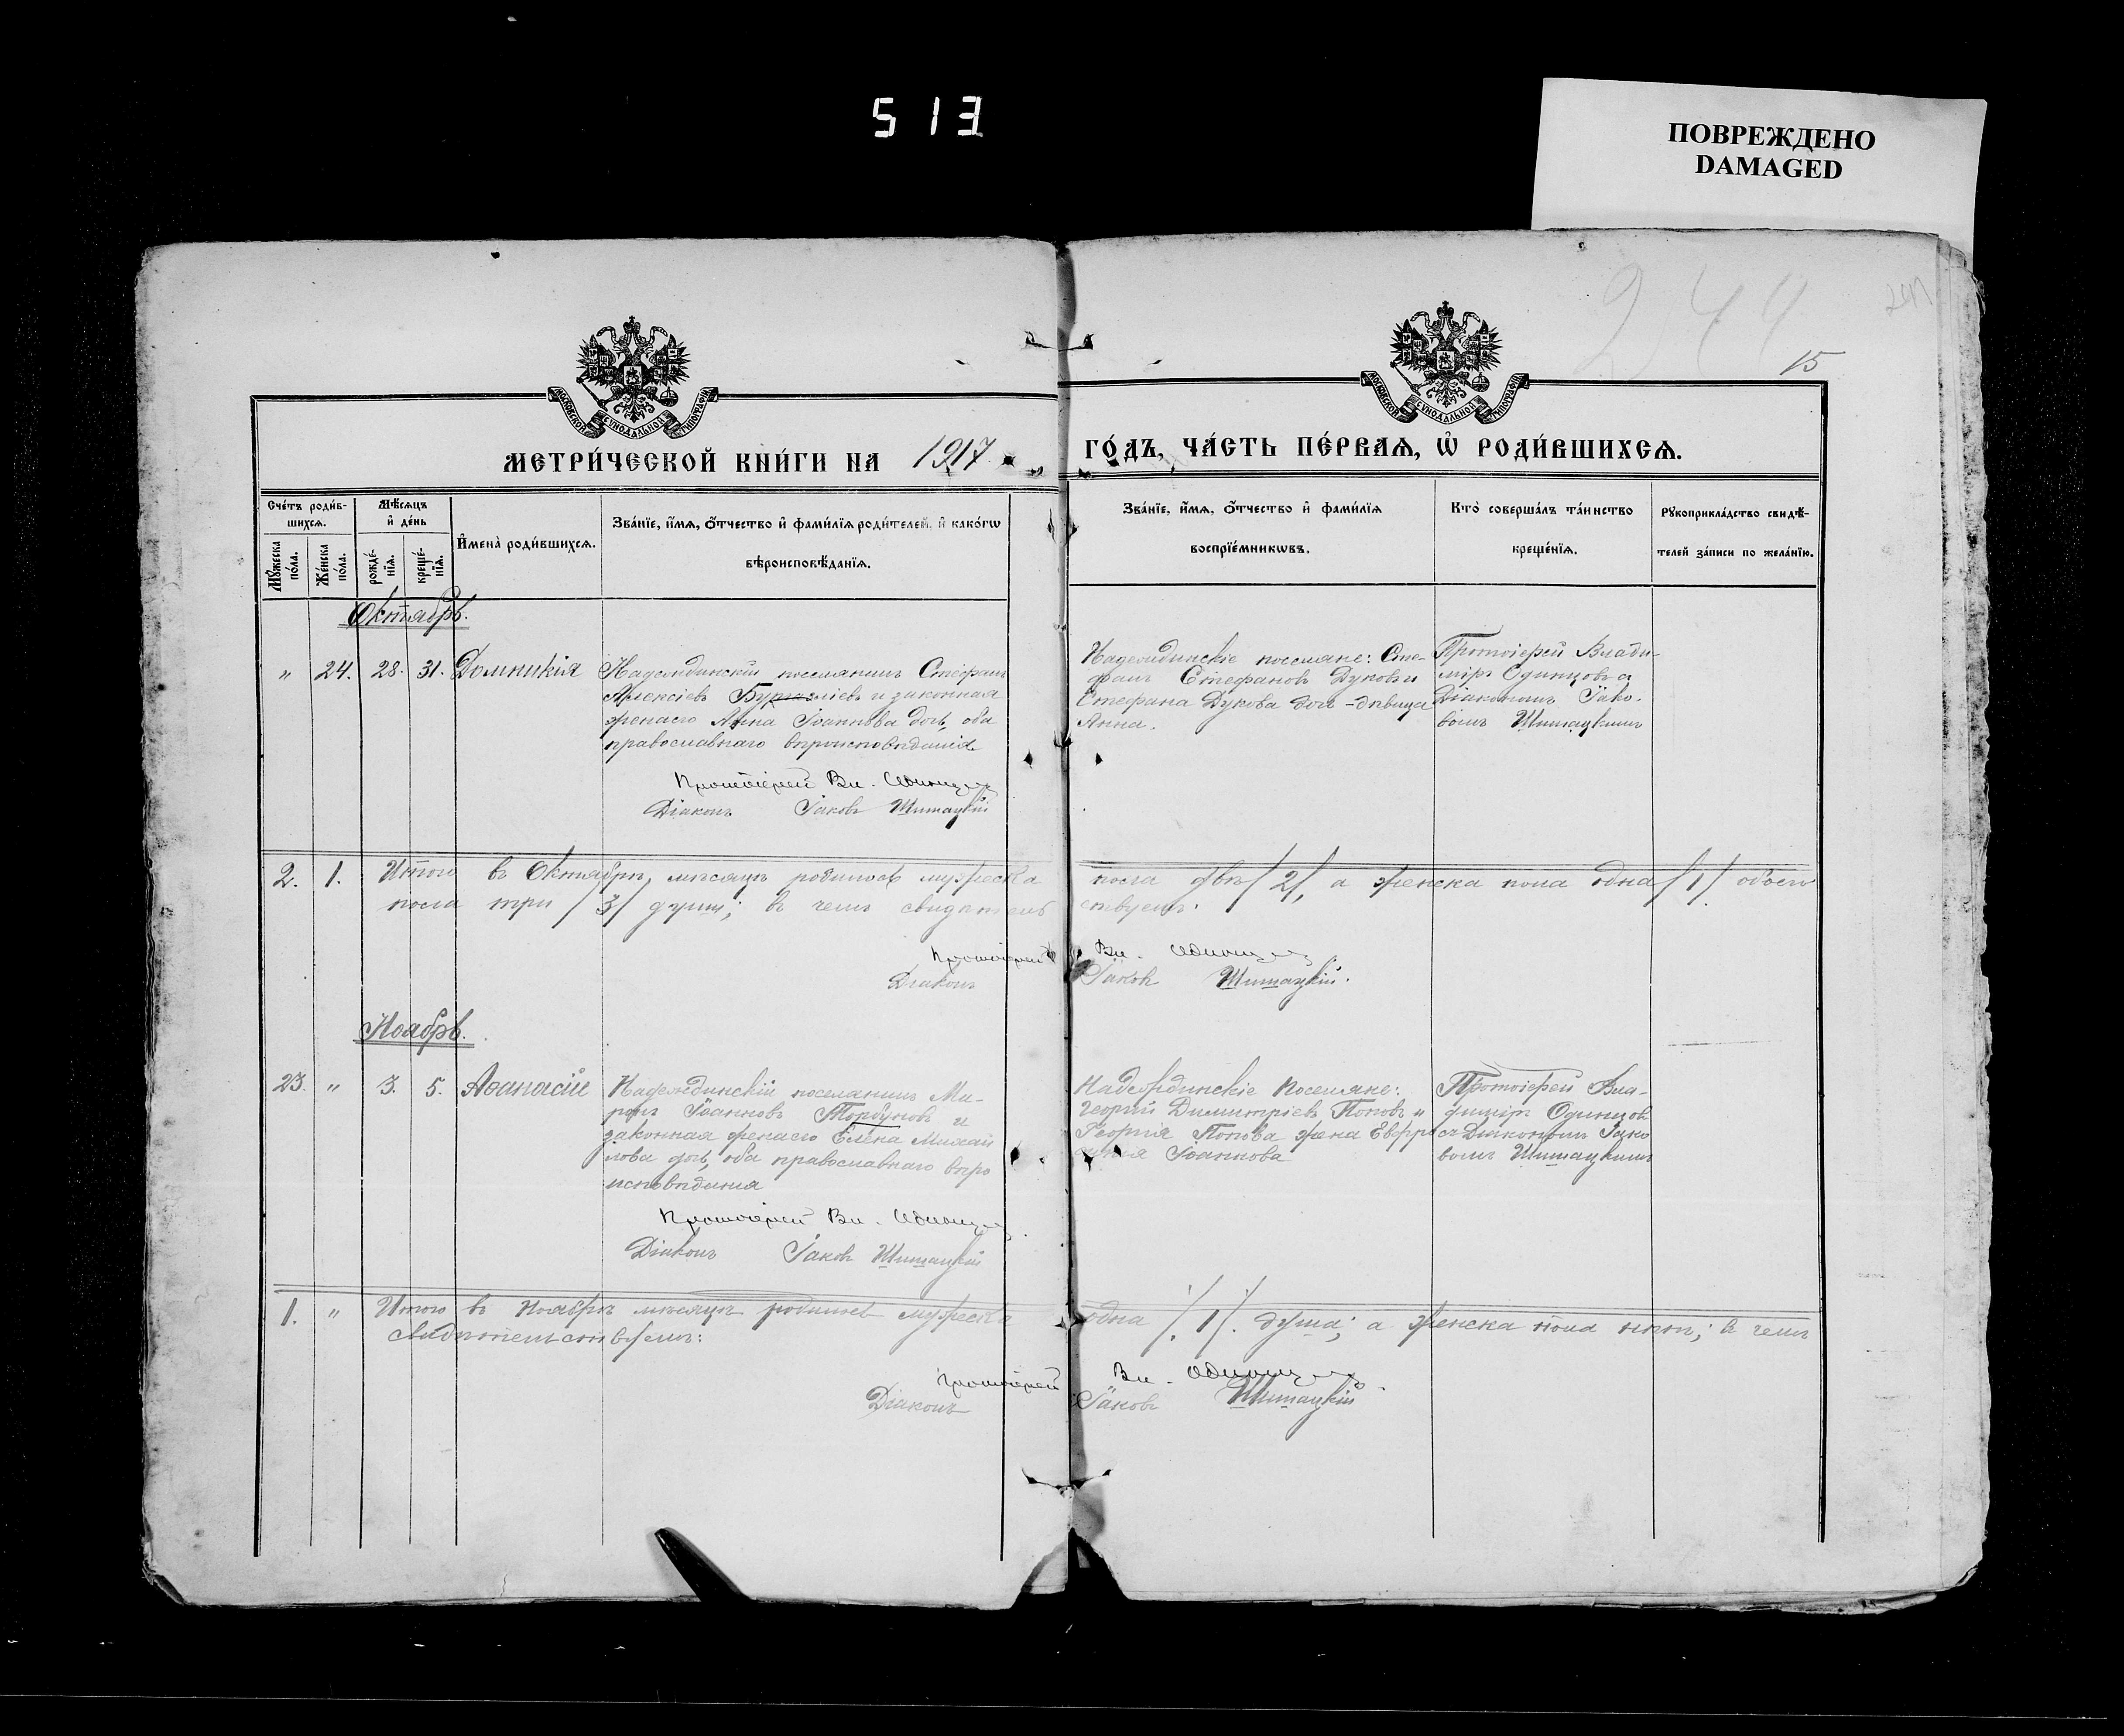 513
ПОВРЕЖДЕНО
DAMAGED
244
15
МОСКОВСКОЙ СУНОДАЛЬНОЙ ТИПОГРАФІИ
МОСКОВСКОЙ СУНОДАЛЬНОЙ ТИПОГРАФІИ
МЕТРИ́ЧЕСКОЙ КНИ́ГИ НА 1917
ГО́ДЪ, ЧА́СТЬ ПЕ́РВАѦ, Ѡ҆ РОДИ́ВШИХСѦ.
Сче́тъ роди́в-
шихсѧ.
Мѣ́сѧцъ
и҆ де́нь
Мꙋ́жеска
по́ла.
Же́нска
по́ла.
рожде́-
нїѧ.
креще́-
нїѧ.
И҆мена̀ роди́вшихсѧ.
Зва́нїе, и҆́мѧ, ѻ҆́тчество и҆ фами́лїѧ роди́телей, и҆ како́гѡ
вѣроисповѣ́данїѧ.
Зва́нїе, и҆́мѧ, ѻ҆́тчество и҆ фами́лїѧ
воспрїе́мникѡвъ.
Кто̀ соверша́лъ та́инство
креще́нїѧ.
Рꙋкоприкла́дство свидѣ́-
телей за́писи по жела́нїю.
Октябрь.
" 24. 28. 31. Домникія
Надеждинскій поселянинъ Стефанъ
Алексіевъ и законная
жена его Анна Іоаннова дочь, оба
православнаго вѣроисповѣданія
Протоіерей Вл. Одинцовъ
Діаконъ Іаковъ Шишацкій
Надеждинскіе поселяне: Сте-
фанъ Стефановъ Дуковъ и
Стефана Дукова дочь - дѣвица
Анна.
Протоіерей Влади-
міръ Одинцовъ съ
Діакономъ Іако-
вомъ Шишацкимъ
2. 1. Итого въ Октябрѣ мѣсяцѣ родилось мужеска пола двѣ /2/, а женска пола одна /1/ обоего
пола три /3/ души; въ чемъ свидѣтельствуемъ.
Протоіерей Вл. Одинцовъ
Діаконъ Іаковъ Шишацкій.
Ноябрь.
23. " 3. 5. Аѳанасій
Надеждинскій поселянинъ Ми-
ронъ Іоанновъ Торбуновъ и
законная жена его Елена Михаи
лова дочь, оба православнаго вѣро
исповѣданія
Протоіерей Вл. Одинцовъ
Діаконъ Іаковъ Шишацкій
Надеждинскіе Поселяне:
Георгій Димитріевъ Поповъ и
Георгія Попова жена Евфро
Іоаннова
Протоіерей Вла-
диміръ Одинцовъ
съ Діакономъ Іако
вомъ Шишацкимъ
1. " Итого въ Ноябрѣ мѣсяцѣ родилось мужеска одна /.1/. душа; а женска пола нѣтъ; въ чемъ
свидѣтельствуемъ:
Протоіерей Вл. Одинцовъ
Діаконъ Іаковъ Шишацкій